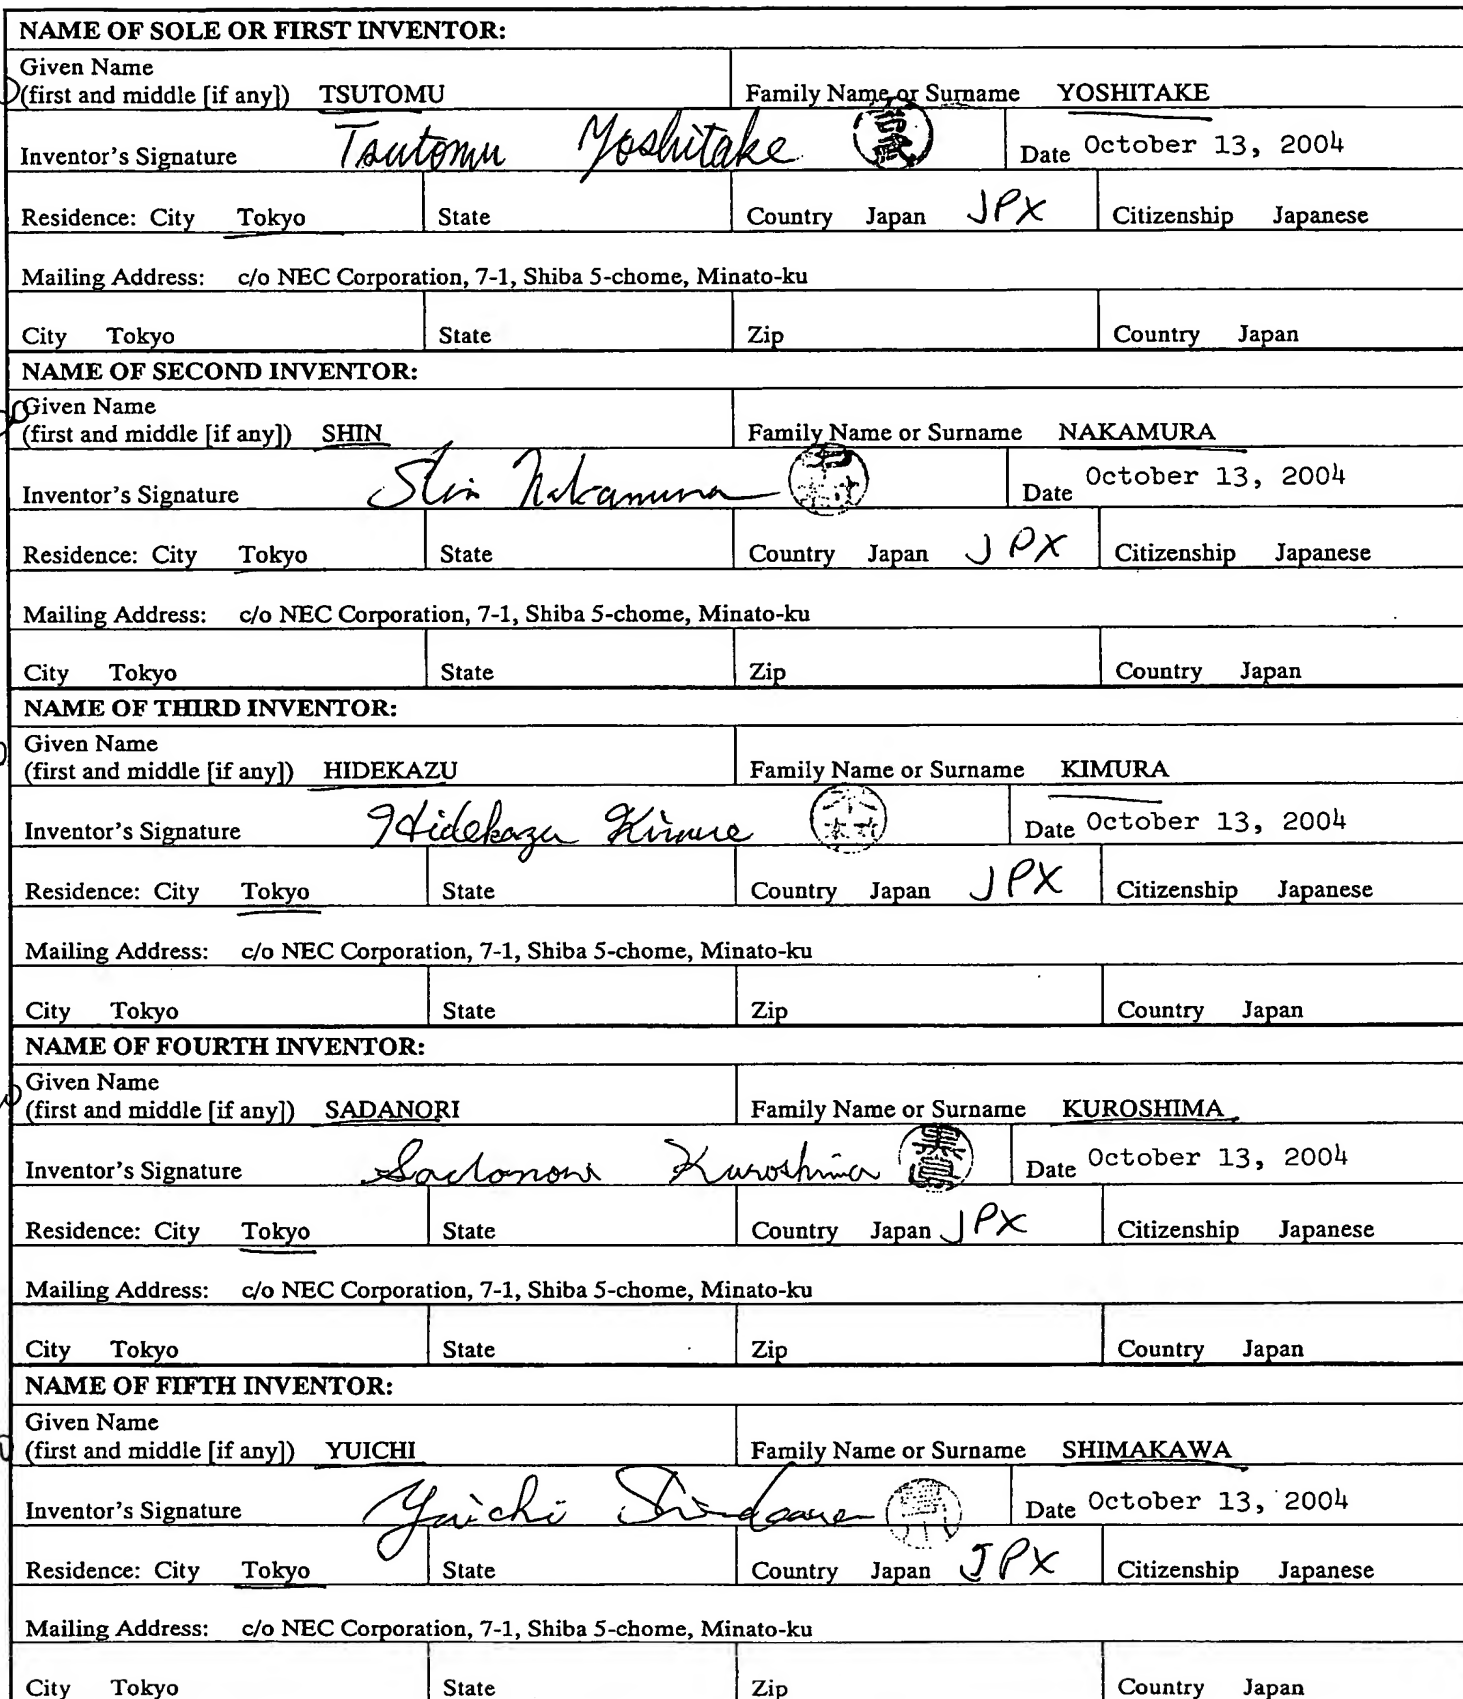 NAME OF SOLE OR FIRST INVENTOR:
Given Name
(first and middle [if any]) TSUTOMU Family Name or Surname YOSHITAKE
Inventor's Signature Tsutomu Yoshitake Date October 13, 2004
Residence: City Tokyo State Country Japan JPX Citizenship Japanese
Mailing Address: c/o NEC Corporation, 7-1, Shiba 5-chome, Minato-ku
City Tokyo State Zip Country Japan
NAME OF SECOND INVENTOR:
Given Name
(first and middle [if any]) SHIN Family Name or Surname NAKAMURA
Inventor's Signature Shin Nakamura 中村 Date October 13, 2004
Residence: City Tokyo State Country Japan JPX Citizenship Japanese
Mailing Address: c/o NEC Corporation, 7-1, Shiba 5-chome, Minato-ku
City Tokyo State Zip Country Japan
NAME OF THIRD INVENTOR:
Given Name
(first and middle [if any]) HIDEKAZU Family Name or Surname KIMURA
Inventor's Signature Hidekazu Kimura 木村 Date October 13, 2004
Residence: City Tokyo State Country Japan JPX Citizenship Japanese
Mailing Address: c/o NEC Corporation, 7-1, Shiba 5-chome, Minato-ku
City Tokyo State Zip Country Japan
NAME OF FOURTH INVENTOR:
Given Name
(first and middle [if any]) SADANORI Family Name or Surname KUROSHIMA
Inventor's Signature Sadanori Kuroshima 黒島 Date October 13, 2004
Residence: City Tokyo State Country Japan JPX Citizenship Japanese
Mailing Address: c/o NEC Corporation, 7-1, Shiba 5-chome, Minato-ku
City Tokyo State Zip Country Japan
NAME OF FIFTH INVENTOR:
Given Name
(first and middle [if any]) YUICHI Family Name or Surname SHIMAKAWA
Inventor's Signature Yuichi Shimakawa Date October 13, 2004
Residence: City Tokyo State Country Japan JPX Citizenship Japanese
Mailing Address: c/o NEC Corporation, 7-1, Shiba 5-chome, Minato-ku
City Tokyo State Zip Country Japan